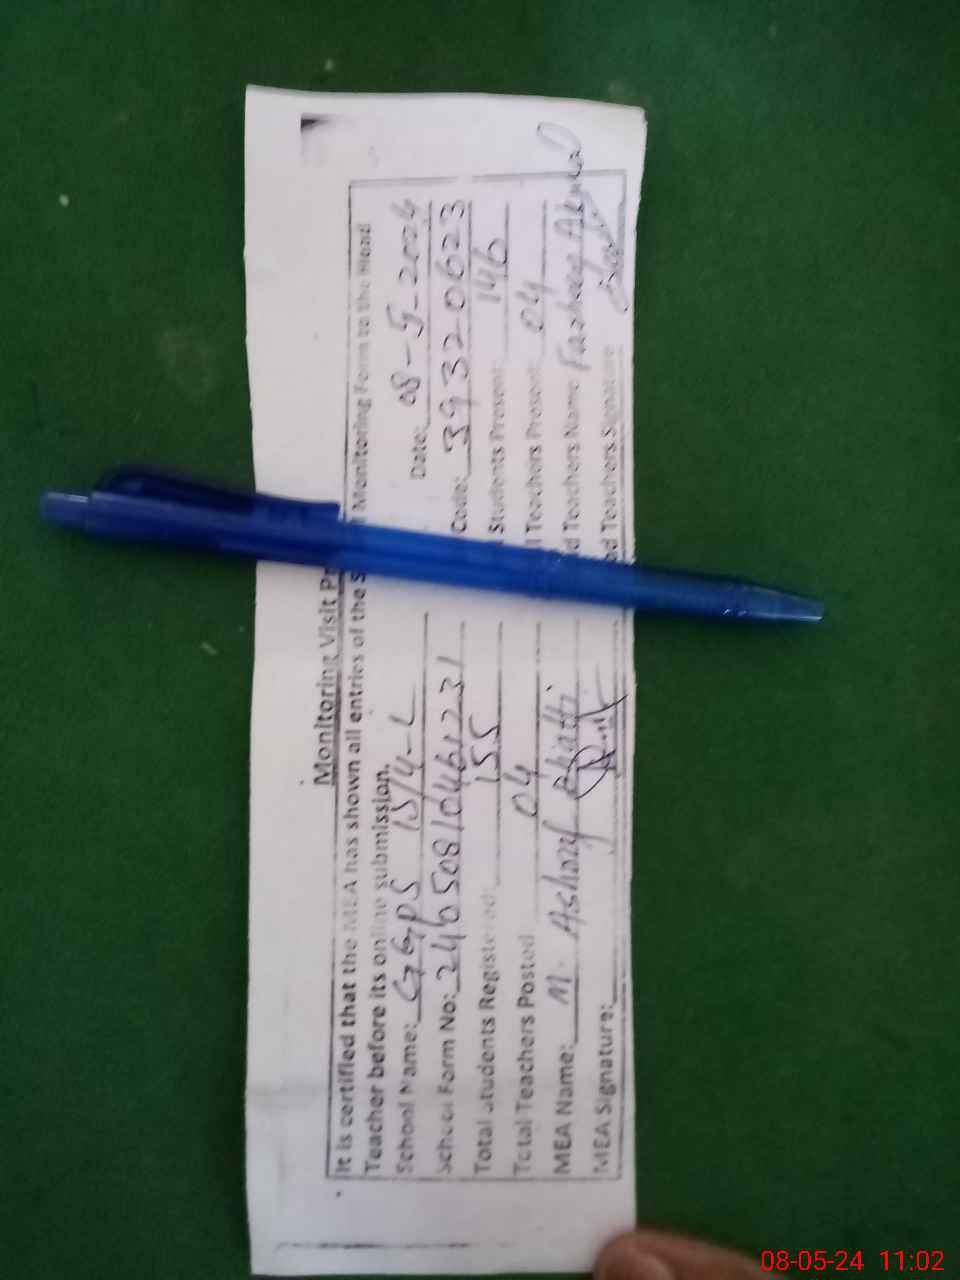 Monitoring Visit Pr
It is certified that the MEA has shown all entries of the S Monitoring Form to the Head
Teacher before its online submission.
Date: 08-5-2024
School Name: GGPS 15/4-L Code: 39320623
School Form No: 24050810461231 Students Present: 146
Total Students Registered: 155 Teachers Present: 04
Total Teachers Posted: 04 d Teachers Name Farhaeg
MEA Name: M. Ashraf Bhatti ad Teachers Signature
MEA Signature:
08-05-24 11:02